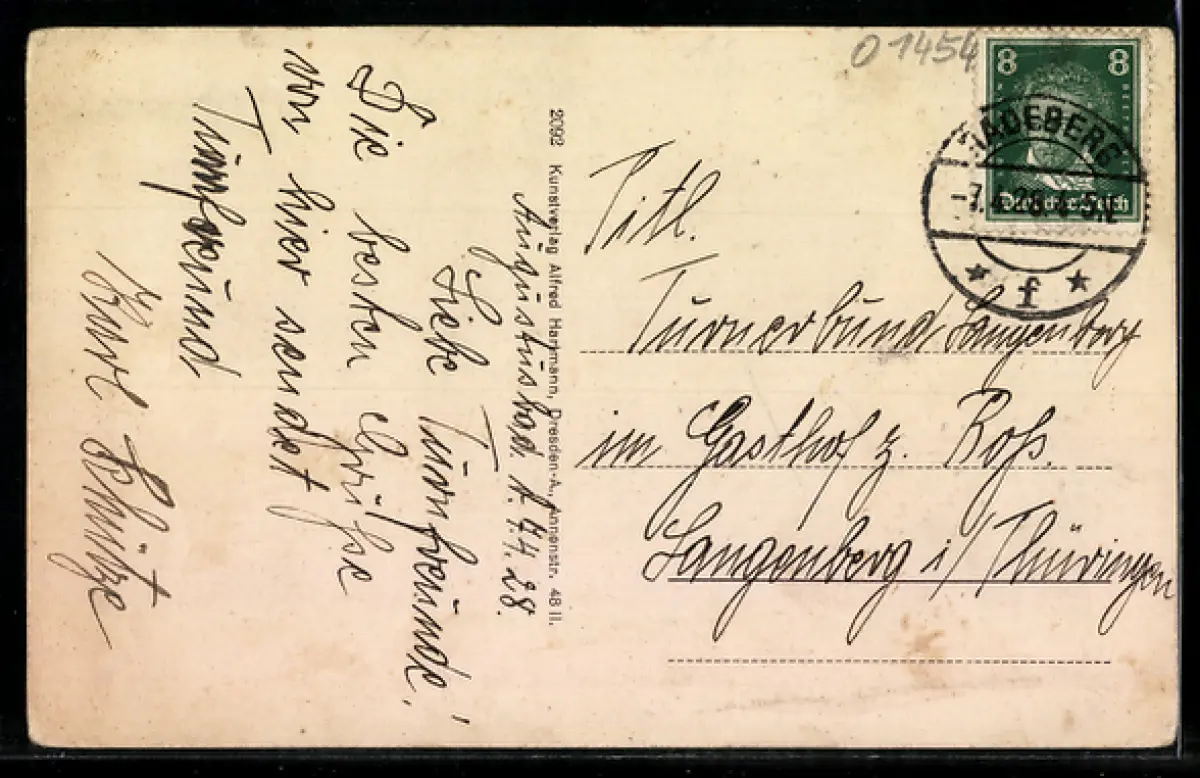 Augustusbad, d. 7.4.28.
Liebe Turnfreunde!
Die besten Grüße
von hier sendet
Turnfreund
Kurt Schütze
2092 Kunstverlag Alfred Hartmann, Dresden-A., Annenstr. 48 II.
01454
8 8
Deutsches Reich
RADEBERG
f
Titl.
Turnerbund Langenberg
im Gasthof z. Roß.
Langenberg i/Thüringen